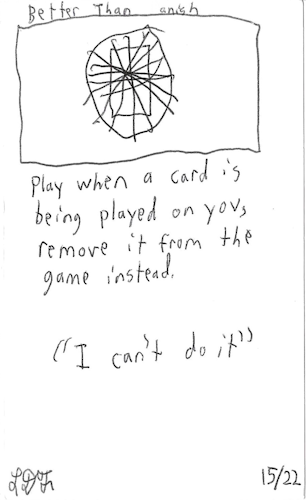 Better Than anish
Play when a card is
being played on you,
remove it from the
game instead.
("I can't do it")
15/22